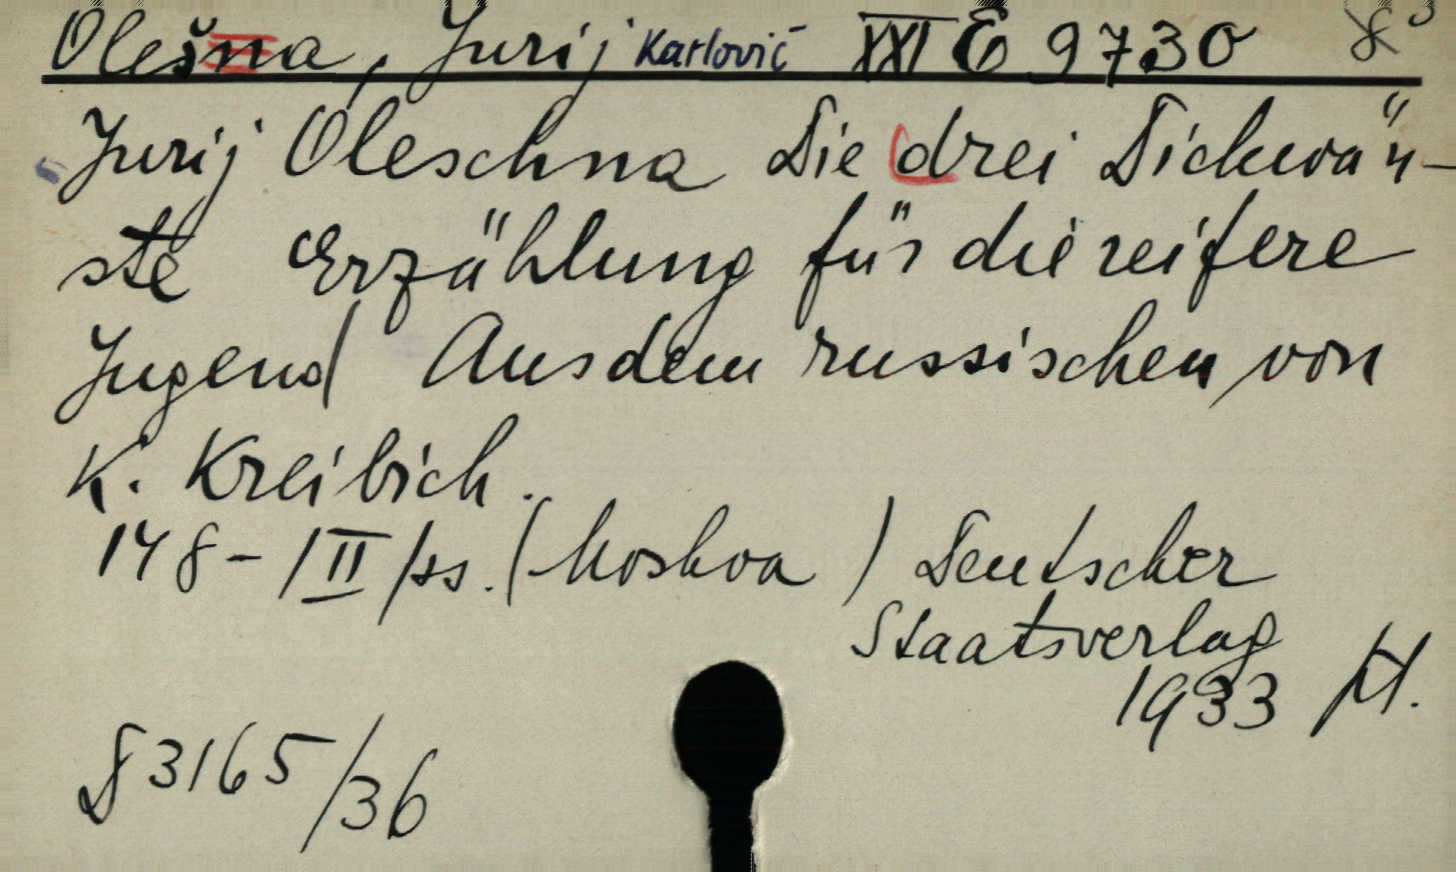 Olešna, Jurij Karlovič XXI E 9730 8°
Jurij Oleschna Die drei Dickwän-
ste Erzählung für die reifere
Jugend Aus dem russischen von
K. Kreibich.
148-/II/ss. (Moskva) Deutscher
Staatsverlag
1933
3165/36